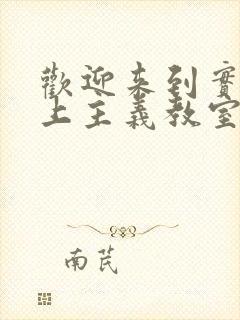 歡迎來到實
上主義教室
南芪